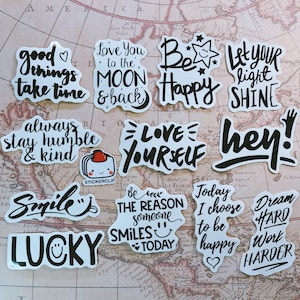 good
things
take time
Love You
to the
MOON
& back
Be
Happy
LET YOUR
light
SHINE
always
stay humble
& kind
STICKERCLP
LOVE
YOURSELF
hey!
Smile
LUCKY
Be
THE REASON
someone
SMILES
TODAY
Today
I choose
to be
happy
Dream
HARD
Work
HARDER